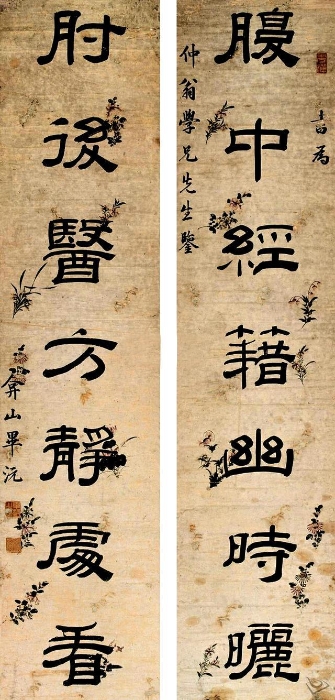 書為
腹中經藉幽時曬
仲翁學兄先生鑒
肘後醫方靜處看
弇山畢沅